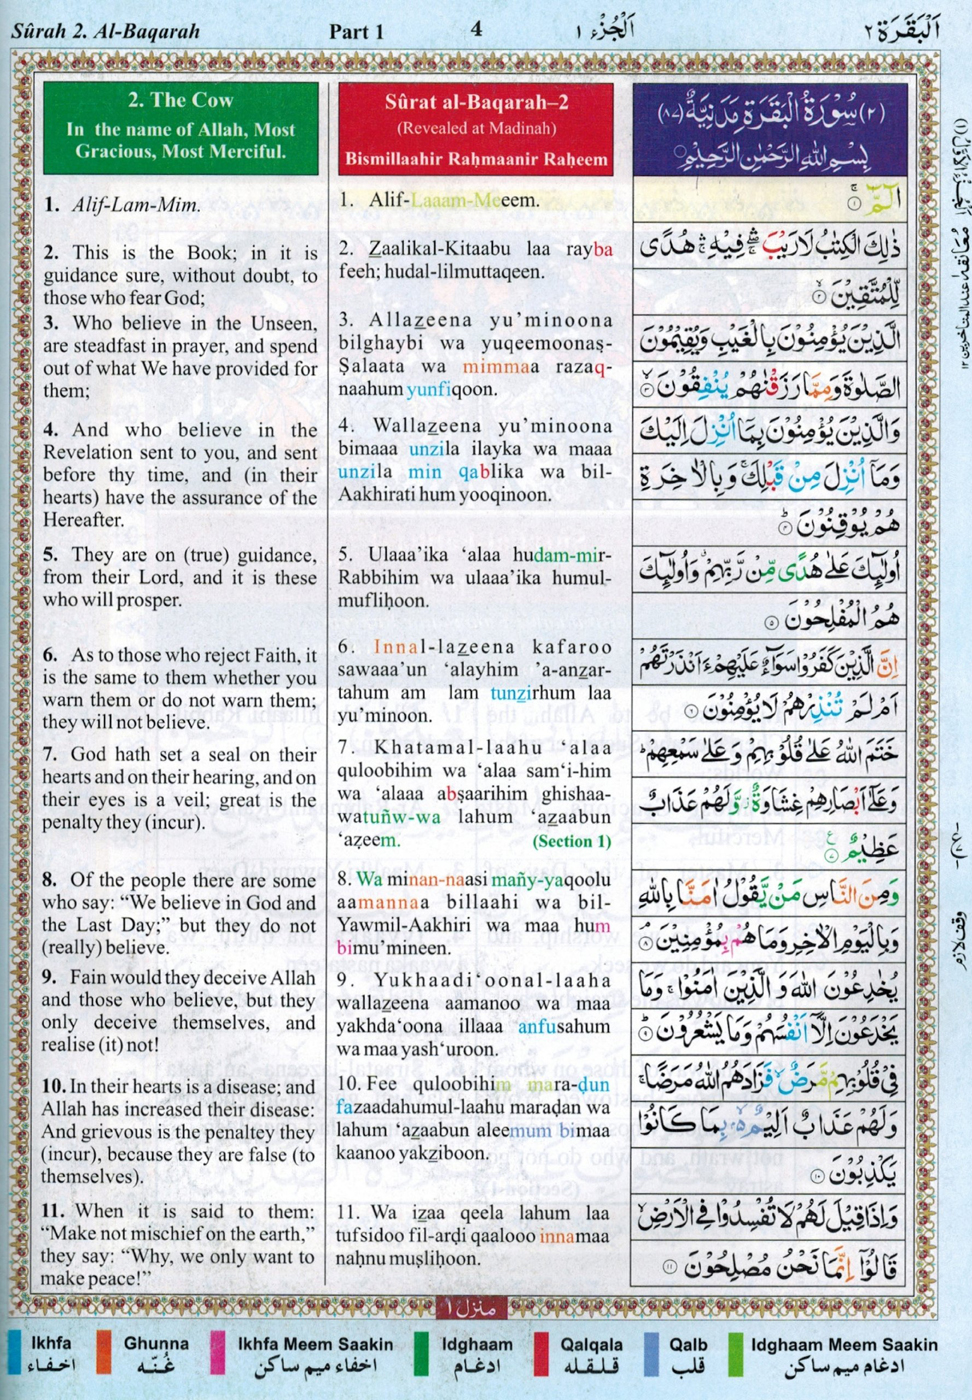 Sûrah 2. Al-Baqarah
Part 1
4
اَلْجُزْء ١
اَلْبَقَرَة ٢
2. The Cow
In the name of Allah, Most
Gracious, Most Merciful.
1. Alif-Lam-Mim.
2. This is the Book; in it is
guidance sure, without doubt, to
those who fear God;
3. Who believe in the Unseen,
are steadfast in prayer, and spend
out of what We have provided for
them;
4. And who believe in the
Revelation sent to you, and sent
before thy time, and (in their
hearts) have the assurance of the
Hereafter.
5. They are on (true) guidance,
from their Lord, and it is these
who will prosper.
6. As to those who reject Faith, it
is the same to them whether you
warn them or do not warn them;
they will not believe.
7. God hath set a seal on their
hearts and on their hearing, and on
their eyes is a veil; great is the
penalty they (incur).
8. Of the people there are some
who say: “We believe in God and
the Last Day;” but they do not
(really) believe.
9. Fain would they deceive Allah
and those who believe, but they
only deceive themselves, and
realise (it) not!
10. In their hearts is a disease; and
Allah has increased their disease:
And grievous is the penaltey they
(incur), because they are false (to
themselves).
11. When it is said to them:
“Make not mischief on the earth,”
they say: “Why, we only want to
make peace!”
Sûrat al-Baqarah–2
(Revealed at Madinah)
Bismillaahir Raḥmaanir Raḥeem
1. Alif-Laaam-Meeem.
2. Zaalikal-Kitaabu laa rayba
feeh; hudal-lilmuttaqeen.
3. Allazeena yu’minoona
bilghaybi wa yuqeemoonaṣ-
Ṣalaata wa mimmaa razaq-
naahum yunfiqoon.
4. Wallazeena yu’minoona
bimaaa unzila ilayka wa maaa
unzila min qablika wa bil-
Aakhirati hum yooqinoon.
5. Ulaaa’ika ‘alaa hudam-mir-
Rabbihim wa ulaaa’ika humul-
mufliḥoon.
6. Innal-lazeena kafaroo
sawaaa’un ‘alayhim ’a-anzar-
tahum am lam tunzirhum laa
yu’minoon.
7. Khatamal-laahu ‘alaa
quloobihim wa ‘alaa sam‘i-him
wa ‘alaaa abṣaarihim ghishaa-
watuñw-wa lahum ‘azaabun
‘aẓeem. (Section 1)
8. Wa minan-naasi mañy-yaqoolu
aamannaa billaahi wa bil-
Yawmil-Aakhiri wa maa hum
bimu’mineen.
9. Yukhaadi‘oonal-laaha
wallazeena aamanoo wa maa
yakhda‘oona illaaa anfusahum
wa maa yash‘uroon.
10. Fee quloobihim mara-ḍun
fazaadahumul-laahu maraḍan wa
lahum ‘azaabun aleemum bimaa
kaanoo yakziboon.
11. Wa izaa qeela lahum laa
tufsidoo fil-arḍi qaalooo innamaa
naḥnu muṣliḥoon.
(٢) سُوْرَةُ الْبَقَرَةِ مَدَنِيَّةٌ (٨٧)
بِسْمِ اللهِ الرَّحْمٰنِ الرَّحِيْمِ
الٓمّٓ ۝١
ذٰلِكَ الْكِتٰبُ لَا رَيْبَ ۛ فِيْهِ ۛ هُدًى
لِّلْمُتَّقِيْنَ ۝٢
الَّذِيْنَ يُؤْمِنُوْنَ بِالْغَيْبِ وَيُقِيْمُوْنَ
الصَّلٰوةَ وَمِمَّا رَزَقْنٰهُمْ يُنْفِقُوْنَ ۝٣
وَالَّذِيْنَ يُؤْمِنُوْنَ بِمَاۤ اُنْزِلَ اِلَيْكَ
وَمَاۤ اُنْزِلَ مِنْ قَبْلِكَ ۚ وَبِالْاٰخِرَةِ
هُمْ يُوْقِنُوْنَ ۝٤
اُولٰٓئِكَ عَلٰى هُدًى مِّنْ رَّبِّهِمْ ۙ وَاُولٰٓئِكَ
هُمُ الْمُفْلِحُوْنَ ۝٥
اِنَّ الَّذِيْنَ كَفَرُوْا سَوَآءٌ عَلَيْهِمْ ءَاَنْذَرْتَهُمْ
اَمْ لَمْ تُنْذِرْهُمْ لَا يُؤْمِنُوْنَ ۝٦
خَتَمَ اللهُ عَلٰى قُلُوْبِهِمْ وَعَلٰى سَمْعِهِمْ ۗ
وَعَلٰۤى اَبْصَارِهِمْ غِشَاوَةٌ ۫ وَّلَهُمْ عَذَابٌ
عَظِيْمٌ ۝٧
وَمِنَ النَّاسِ مَنْ يَّقُوْلُ اٰمَنَّا بِاللهِ
وَبِالْيَوْمِ الْاٰخِرِ وَمَا هُمْ بِمُؤْمِنِيْنَ ۝٨
يُخٰدِعُوْنَ اللهَ وَالَّذِيْنَ اٰمَنُوْا ۚ وَمَا
يَخْدَعُوْنَ اِلَّاۤ اَنْفُسَهُمْ وَمَا يَشْعُرُوْنَ ۝٩
فِيْ قُلُوْبِهِمْ مَّرَضٌ ۙ فَزَادَهُمُ اللهُ مَرَضًا ۚ
وَلَهُمْ عَذَابٌ اَلِيْمٌۢ ۙ بِمَا كَانُوْا
يَكْذِبُوْنَ ۝١٠
وَاِذَا قِيْلَ لَهُمْ لَا تُفْسِدُوْا فِي الْاَرْضِ ۙ
قَالُوْۤا اِنَّمَا نَحْنُ مُصْلِحُوْنَ ۝١١
وقف لازم
منزل ١
Ikhfa
اخفاء
Ghunna
غُنّه
Ikhfa Meem Saakin
اخفاء ميم ساكن
Idghaam
ادغام
Qalqala
قلقله
Qalb
قلب
Idghaam Meem Saakin
ادغام ميم ساكن